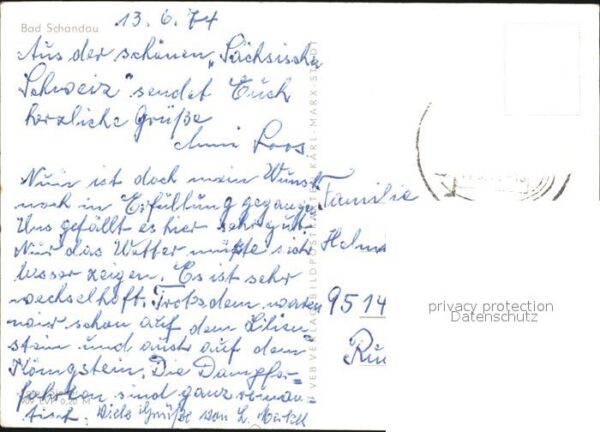 13.6.74
Bad Schandau
Aus der schönen „Sächsische
Schweiz" sendet Euch
herzliche Grüße
Anni Loos
Nun ist doch mein Wunsch
noch in Erfüllung gegangen
Uns gefällt es hier sehr gut.
Nur das Wetter müßte sich
besser zeigen. Es ist sehr
wechselhaft. Trotzdem waren
wir schon auf dem Lilien
stein und auch auf dem
Königstein. Die Dampfer-
fahrten sind ganz roman
tisch. Viele Grüße von L.
EVP 0,20 M
VEB VERLAG BILDPOSTKARTEN KARL-MARX-STADT
Familie
Helmu
9514
privacy protection
Datenschutz